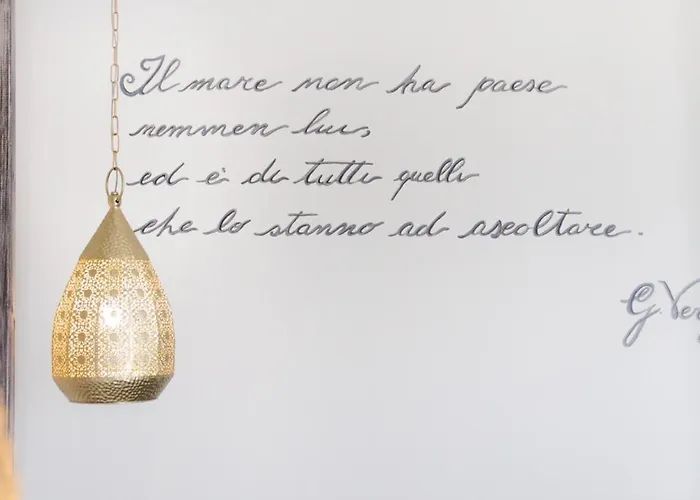 Il mare non ha paese
nemmen lui,
ed è di tutti quelli
che lo stanno ad ascoltare.
G. Ver